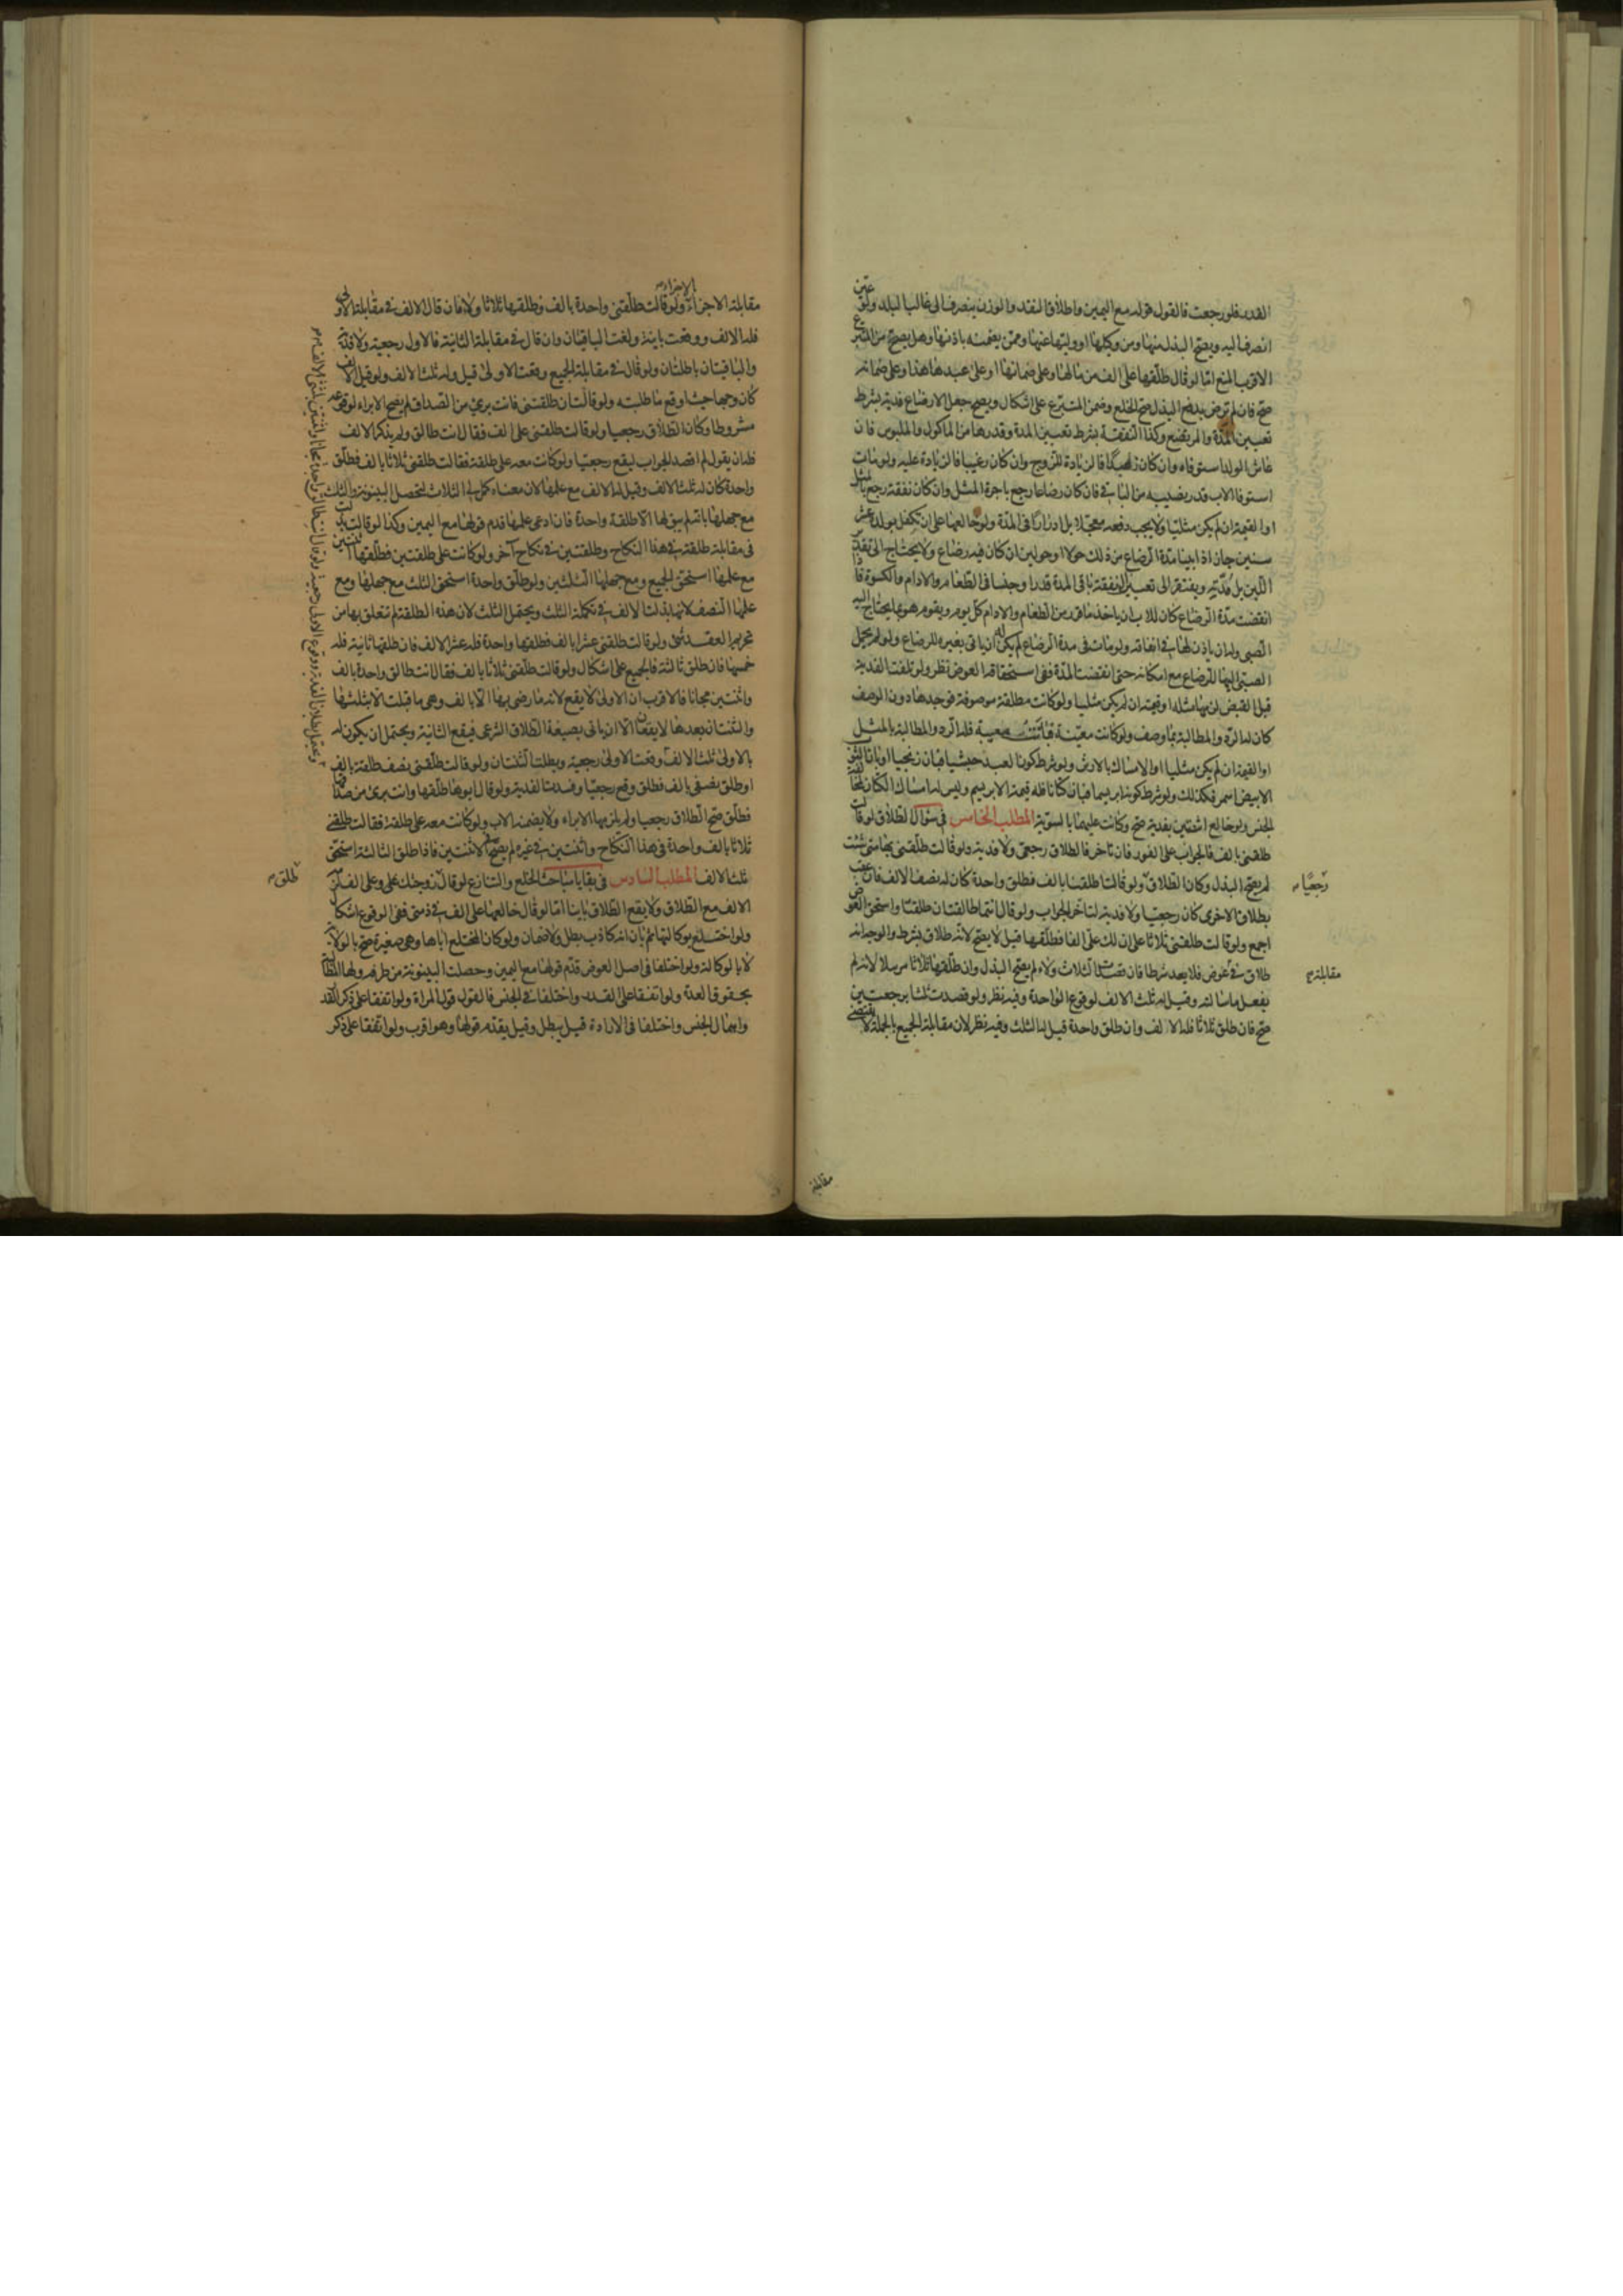 القدر فلو رجعت فالقول قوله مع اليمين واطلاق النقد والوزن ينصرف الى غالب البلد ولو عين
انصرف اليه ويصح البذل منها ومن وكيلها او وليها عنها وممن يضمنه باذنها وهل يصح من المتبرع
الاقرب المنع اما لو قال طلقها على الف من مالها وعلى ضمانها او على عبدها هذا وعلى ضمانه
صح فان لم ترض بدفع البذل صح الخلع وضمن المتبرع على اشكال ويصح جعل الارضاع فدية بشرط
تعيين المدة والمرتضع وكذا النفقة بشرط تعيين المدة وقدرها من الماكول والملبوس فان
عاش الولد استوفاه وان كان زهيدا فالزيادة للزوج وان كان رغيبا فالزيادة عليه ولو مات
استوفا الاب قدر نصيبه من الباقي فان كان رضاعا رجع باجرة المثل وان كان نفقة رجع بالمثل
او القيمة ان لم يكن مثليا ولا يجب دفعه معجلا بل ادرارا في المدة ولو خالعها على ان تكفل بولده عشر
سنين جاز اذا بينا مدة الرضاع من ذلك حولا او حولين ان كان فيه رضاع ولا يحتاج الى تقدير
اللبن بل مدته ويفتقر الى تعيين النفقة باقي المدة قدرا وجنسا في الطعام والادام والكسوة فاذا
انقضت مدة الرضاع كان للاب ان ياخذ ما قدر من الطعام والادام كل يوم ويقوم هو بما يحتاج اليه
الصبي وله ان ياذن لها في انفاقه ولو مات في مدة الرضاع لم يكن له ان ياتي بغيره للرضاع ولو لم يحمل
الصبي اليها للرضاع مع امكانه حتى انقضت المدة ففي استحقاقه العوض نظر ولو تلفت الفدية
قبل القبض لزمها مثله او قيمته ان لم يكن مثليا ولو كانت مطلقة موصوفة فوجدها دون الوصف
كان له الرد والمطالبة بما وصف ولو كانت معينة فبانت معيبة فله الرد والمطالبة بالمثل
او القيمة ان لم يكن مثليا او الامساك بالارش ولو شرط كونه العبد حبشيا فبان زنجيا او بان الثوب
الابيض اسمر فكذلك ولو شرط كونه ابريسما فبان كتانا فله قيمة الابريسم وليس له امساك الكتان لمخالفة
الجنس ولو خالع اثنتين بفدية صح وكانت عليهما بالسوية المطلب الخامس في سؤال الطلاق لو قالت
طلقني بالف فالجواب على الفور فان تاخر فالطلاق رجعي ولا فدية ولو قالت طلقني بها متى شئت
لم يصح البذل وكان الطلاق رجعيا ولو قالتا طلقنا بالف فطلق واحدة كان له نصف الالف فان عقب
بطلاق الاخرى كان رجعيا ولا فدية لتاخر الجواب ولو قال انتما طالقتان طلقتا واستحق العوض
اجمع ولو قالت طلقني ثلاثا على ان لك علي الفا فطلقها قيل لا يصح لانه طلاق بشرط والوجه انه
طلاق في عوض فلا يعد شرطا فان قصدت الثلاث ولاء لم يصح البذل وان طلقها ثلاثا مرسلا لانه لم
يفعل ما سالته وقيل له ثلث الالف لوقوع الواحدة وفيه نظر ولو قصدت ثلثا برجعتين
صح فان طلق ثلاثا فله الالف وان طلق واحدة قيل له الثلث وفيه نظر لان مقابلة الجميع بالجملة لا يقتضي
رجعيا
مقابلته
مقابلة
مقابلة الاجزاء بالاجزاء ولو قالت طلقني واحدة بالف فطلقها ثلاثا ولاء فان قال الالف في مقابلة الاولى
فله الالف ووقعت باينة ولغت الباقيتان وان قال في مقابلة الثانية فالاولى رجعية ولا فدية
والباقيتان باطلتان ولو قال في مقابلة الجميع وقعت الاولى قيل وله ثلث الالف ولو قيل الالف
كان وجها حيث اوقع ما طلبته ولو قال انت طالق وله
مشروطا وكان الطلاق رجعيا ولو قالت طلقني على الف فقال انت طالق ولم يذكر الالف
فله ان يقول لم اقصد الجواب ليقع رجعيا ولو كانت معه على طلقة فقالت طلقني ثلاثا بالف فطلق
واحدة كان له ثلث الالف وقيل له الالف مع علمها لان معناه كمل لي الثلاث لتحصل البينونة والثلث
مع جهلها بانه لم يبق لها الا طلقة واحدة فان ادعى علمها قدم قولها مع اليمين وكذا لو قالت بذلت
في مقابلة طلقة في هذا النكاح وطلقتين في نكاح آخر ولو كانت على طلقتين فطلقها اثنتين
مع علمها استحق الجميع ومع جهلها الثلثين ولو طلق واحدة استحق الثلث مع جهلها ومع
علمها النصف لانها بذلت الالف في تكملة الثلث ويحتمل الثلث لان هذه الطلقة لم تعلق بها من
تحريم العقد شيء ولو قالت طلقني عشرا بالف فطلقها واحدة فله عشر الالف فان طلقها ثانية فله
خمسها فان طلق ثالثة فالجميع على اشكال ولو قالت طلقني ثلاثا بالف فقال انت طالق واحدة بالف
واثنتين مجانا فالاقرب ان الاولى لا يقع لانه ما رضي بها الا بالف وهي ما قبلت الا بثلثها
والثنتان بعدها لا يقعان الا ان ياتي بصيغة الطلاق الشرعي فيقع الثانية ويحتمل ان يكون له
بالاولى ثلث الالف وقعت الاولى رجعية وبطلت الثنتان ولو قالت طلقني نصف طلقة بالف
او طلق نصفي بالف فطلق وقع رجعيا وفسدت الفدية ولو قال ابوها طلقها وانت بريء من صداقها
فطلق صح الطلاق رجعيا ولم يلزمها الابراء ولا يضمنه الاب ولو كانت معه على طلقة فقالت طلقني
ثلاثا بالف واحدة في هذا النكاح واثنتين في غيره لم يصح في الاثنتين فاذا طلق الثالثة استحق
ثلث الالف المطلب السادس في بقايا مباحث الخلع والتنازع لو قال زوجتك علي وعلى الف لزم
الالف مع الطلاق ولا يقع الطلاق باينا اما لو قال خالعها على الف في ذمتي ففي الوقوع اشكال
ولو اختلع بوكالتها ثم بان انه كاذب بطل ولا ضمان ولو كان المختلع اباها وهي صغيرة صح بالولاية
لا بالوكالة ولو اختلفا في اصل العوض قدم قولها مع اليمين وحصلت البينونة من طرفه ولها المطالبة
بحقوق العدة ولو اتفقا على القدر واختلفا في الجنس فالقول قول المراة ولو اتفقا على ذكر القدر
واهمال الجنس واختلفا في الارادة قيل يبطل وقيل يقدم قولها وهو اقرب ولو اتفقا على ذكر
طلق